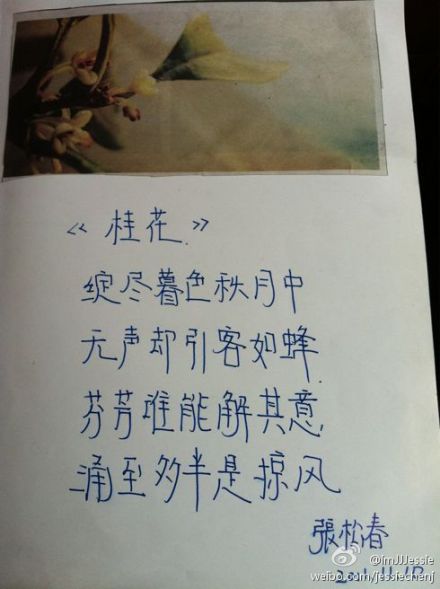 《桂花》
绽尽暮色秋月中
无声却引客如蜂
芬芳谁能解其意
涌至多半是掠风
張松春
@imJJJessie
weibo.com/jessiechenj